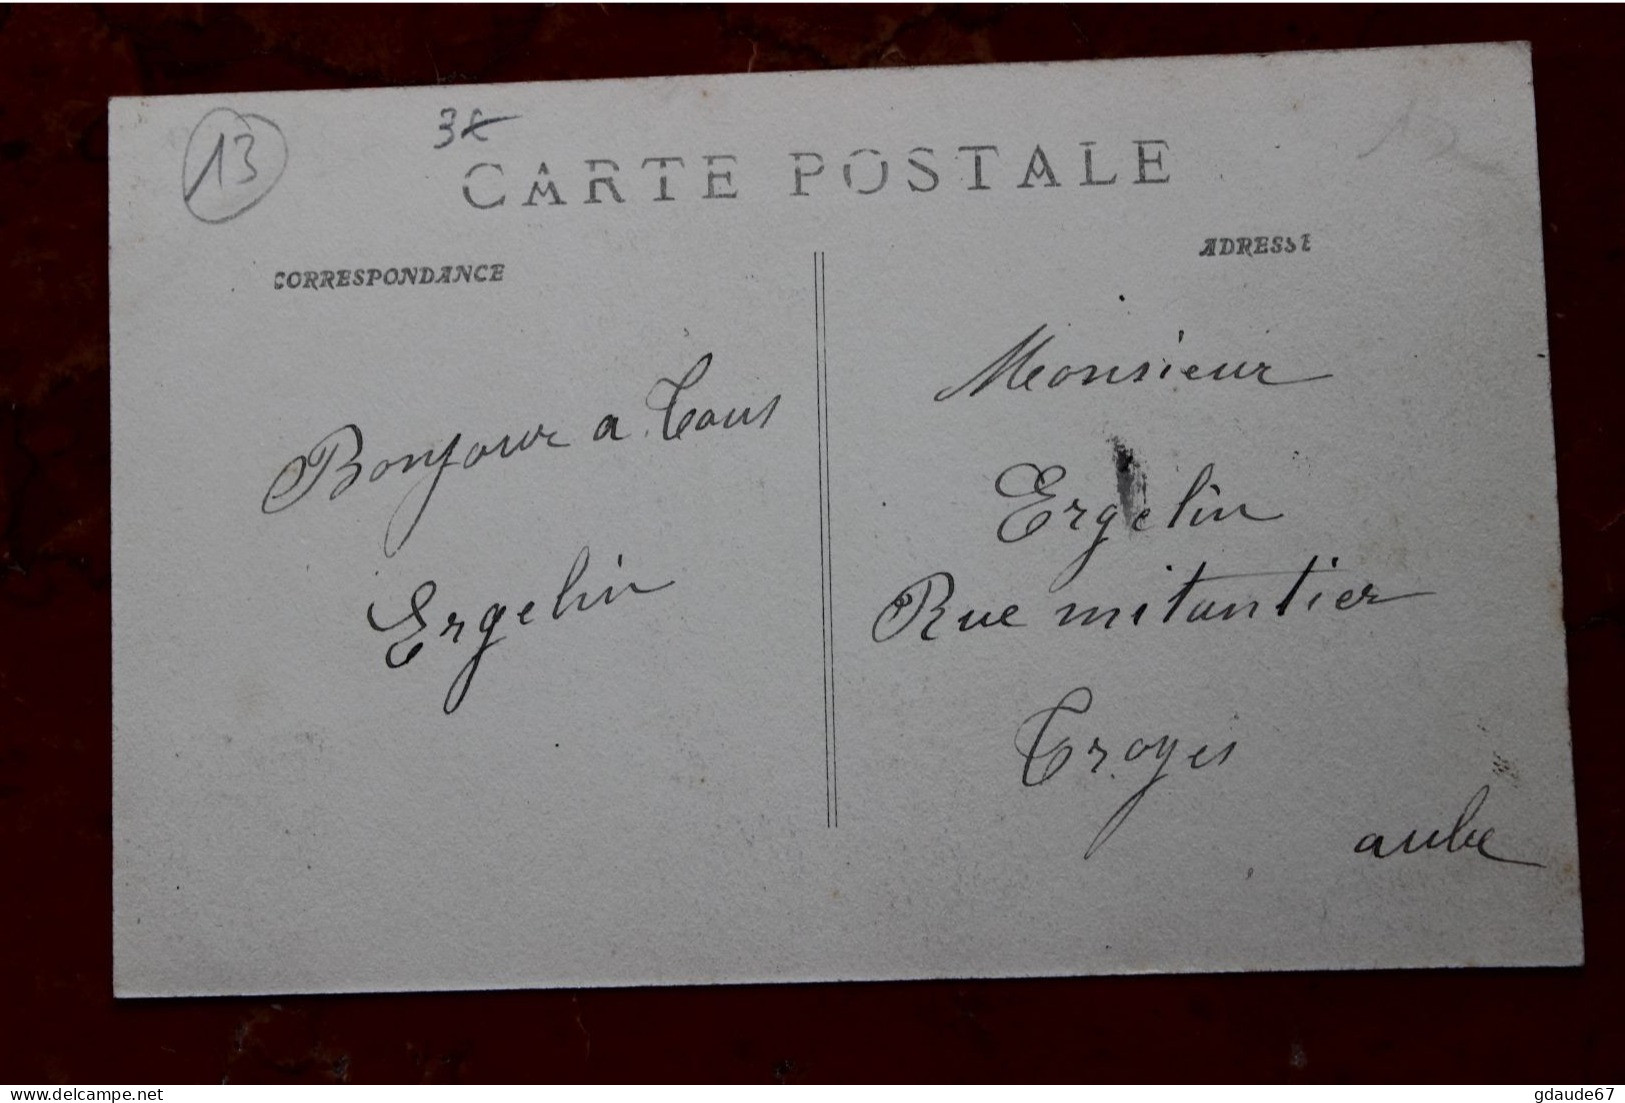 13
CARTE POSTALE
CORRESPONDANCE
ADRESSE
Bonjour a Tous
Ergelin
Monsieur
Ergelin
Rue mitantier
Troyes
aube
delcampe.net
gdaude67